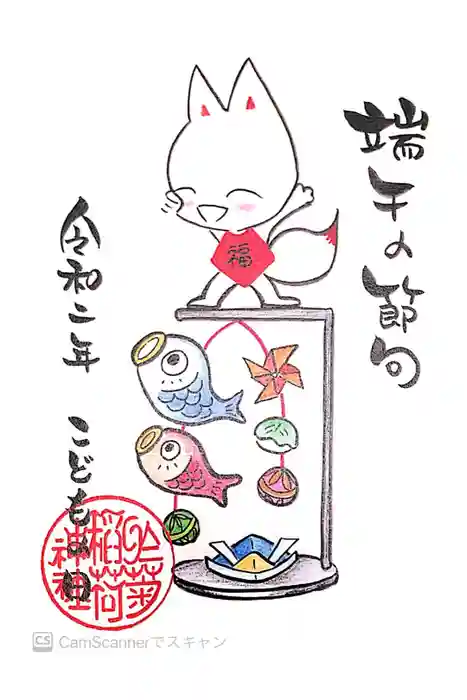 端午の節句
福
令和二年 こどもの日
稲荷
神社
CS CamScannerでスキャン